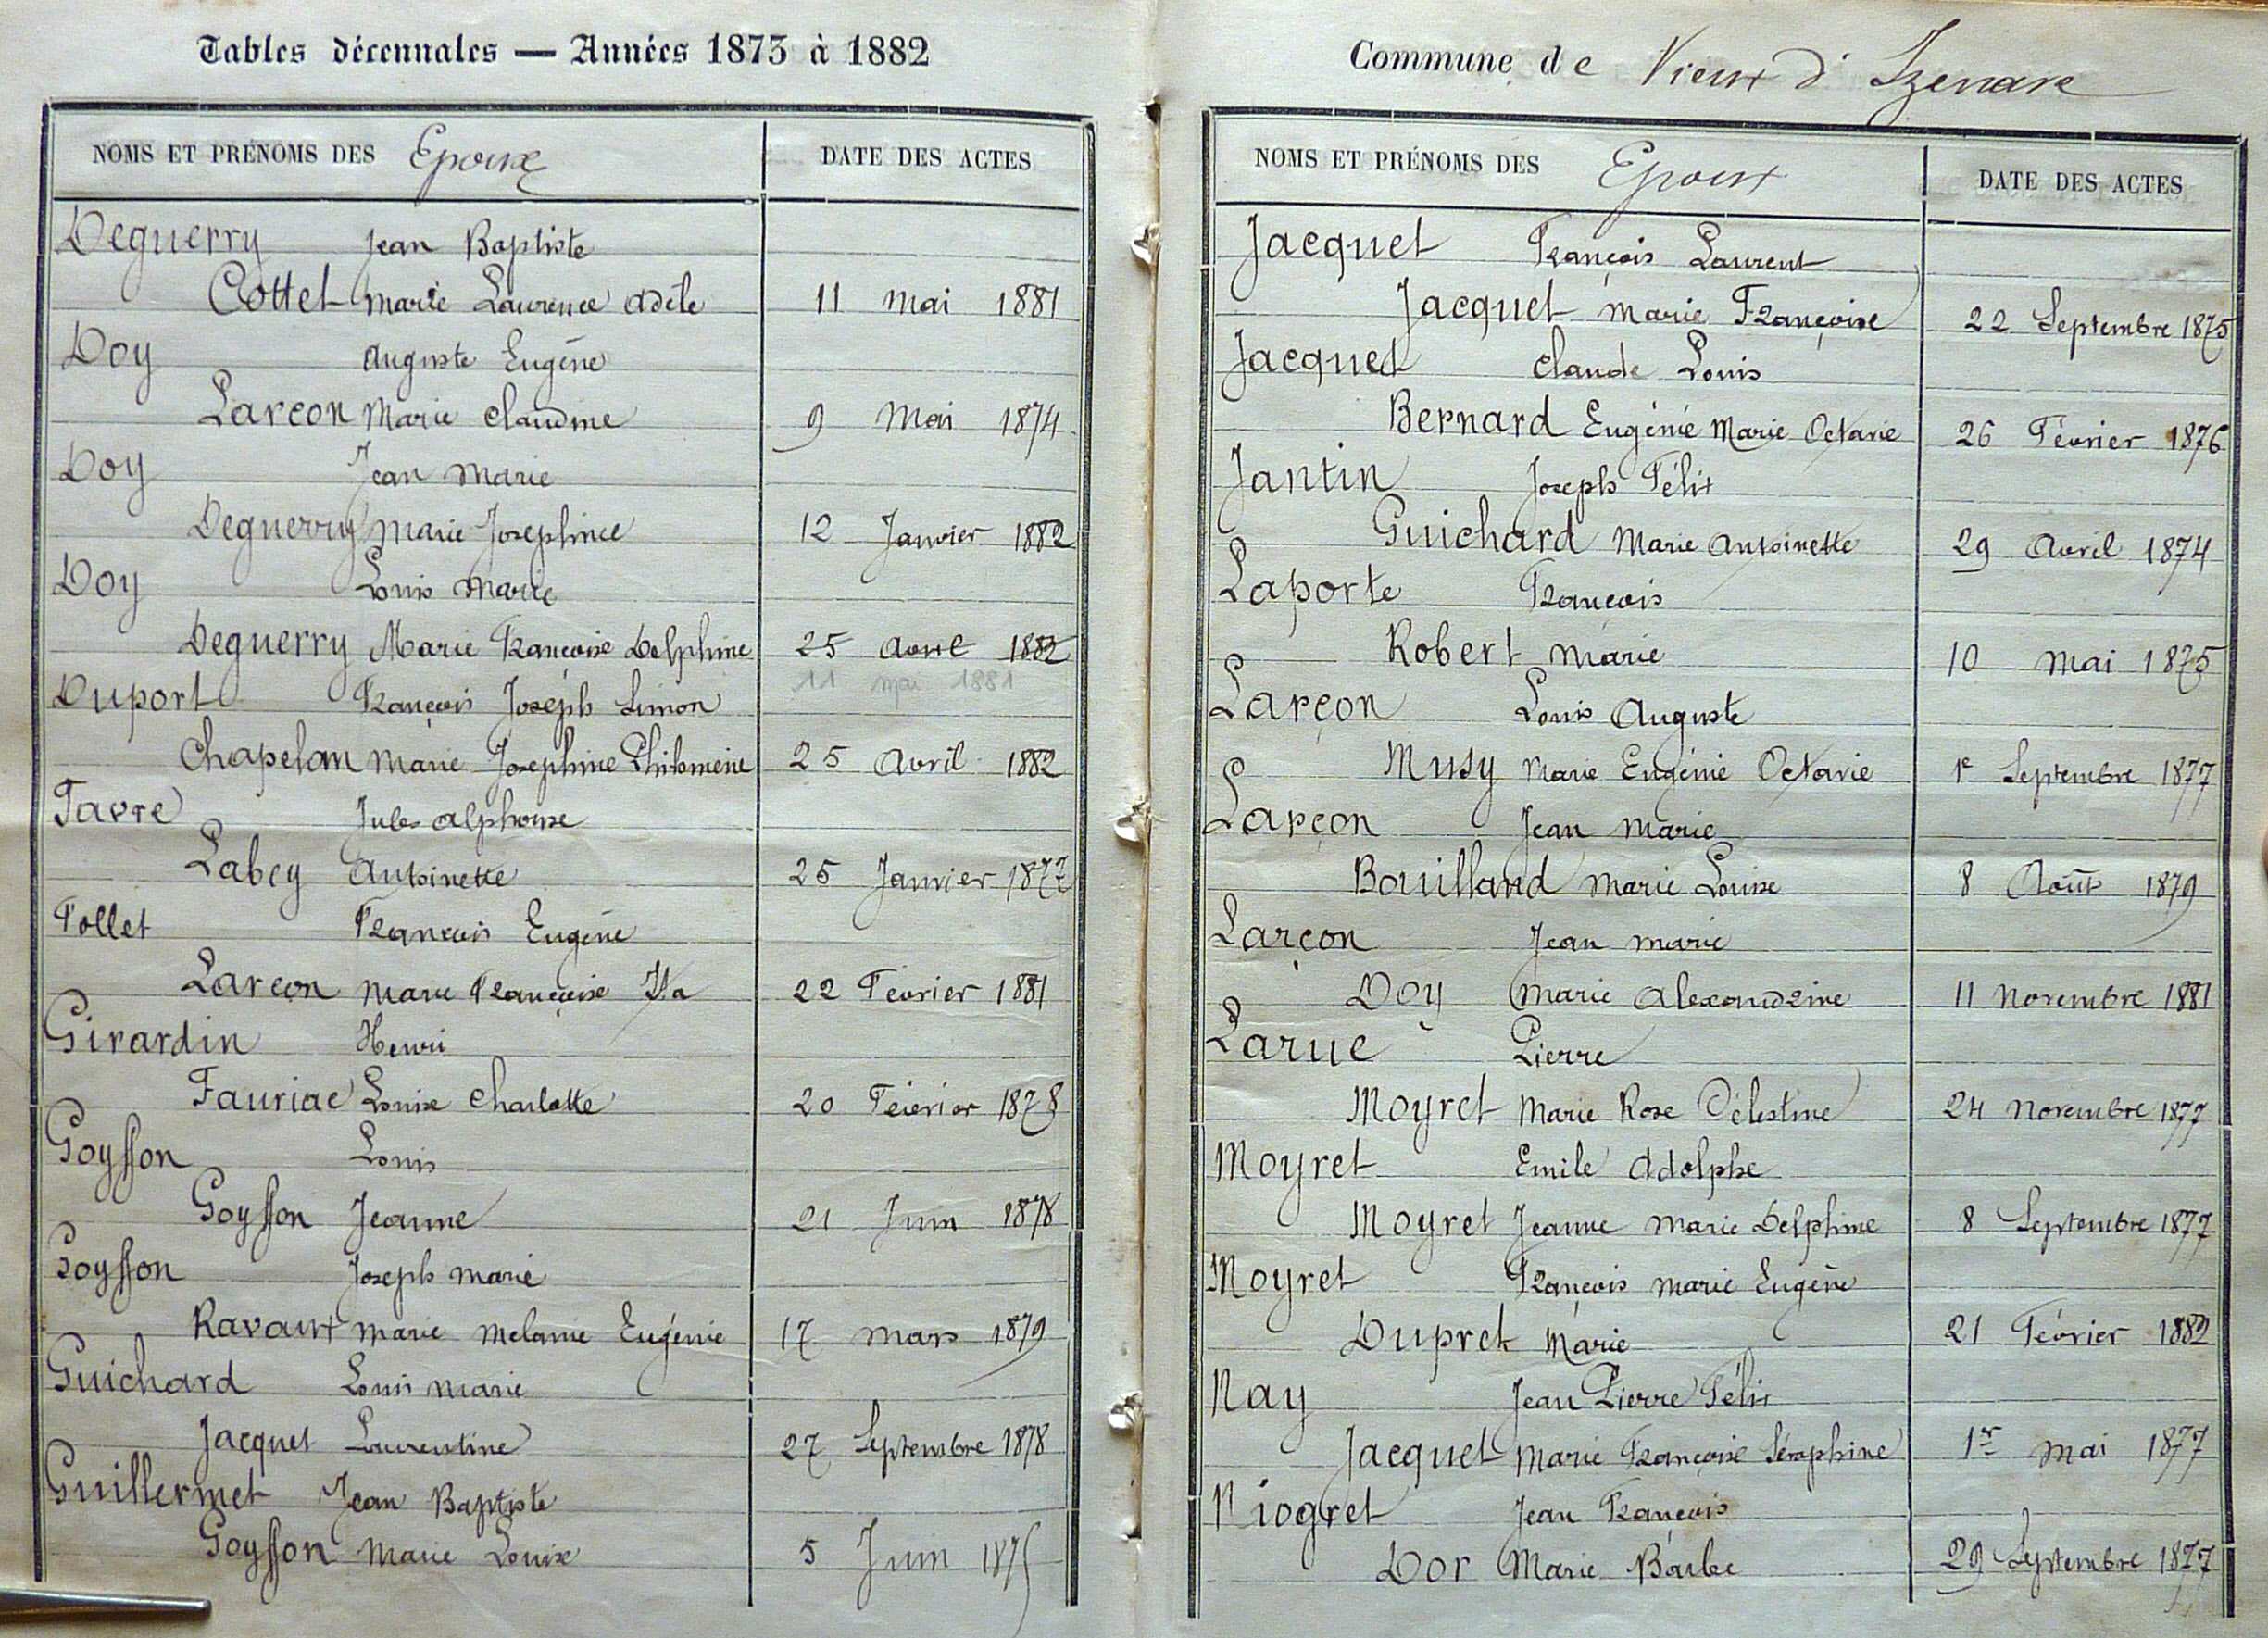 Tables décennales — Années 1873 à 1882
NOMS ET PRÉNOMS DES Epoux DATE DES ACTES
Deguerry Jean Baptiste
Cottet Marie Laurence Adèle 11 Mai 1881
Doy Auguste Eugène
Larcon Marie Claudine 9 Mai 1874
Doy Jean Marie
Deguerry Marie Josephine 12 Janvier 1882
Doy Louis Marie
Deguerry Marie Françoise Delphine 25 Avril 1882
11 mai 1881
Duport François Joseph Simon
Chapelan Marie Josephine Philomène 25 Avril 1882
Favre Jules Alphonse
Labey Antoinette 25 Janvier 1877
Follet François Eugène
Larçon Marie Françoise 22 Février 1881
Girardin Henri
Fauriac Louise Charlotte 20 Février 1878
Goysson Louis
Goysson Jeanne 21 Juin 1878
Goysson Joseph Marie
Ravaux Marie Melanie Eugénie 17 Mars 1879
Guichard Louis Marie
Jacquet Laurentine 27 Septembre 1878
Guillermet Jean Baptiste
Goysson Marie Louise 5 Juin 1875
Commune de Vieux d'Izenave
NOMS ET PRÉNOMS DES Epoux DATE DES ACTES
Jacquet François Laurent
Jacquet Marie Françoise 22 Septembre 1875
Jacquet Claude Louis
Bernard Eugénie Marie Octavie 26 Février 1876
Jantin Joseph Félix
Guichard Marie Antoinette 29 Avril 1874
Laporte François
Robert Marie 10 Mai 1875
Larçon Louis Auguste
Musy Marie Eugénie Octavie 1r Septembre 1877
Larçon Jean Marie
Bouilland Marie Louise 8 Août 1879
Larçon Jean Marie
Doy Marie Alexandrine 11 Novembre 1881
Larue Pierre
Moyret Marie Rose Célestine 24 Novembre 1877
Moyret Emile Adolphe
Moyret Jeanne Marie Delphine 8 Septembre 1877
Moyret François Marie Eugène
Dupret Marie 21 Février 1882
Nay Jean Pierre Félix
Jacquet Marie Françoise Séraphine 1er Mai 1877
Niogret Jean François
Dor Marie Barbe 29 Septembre 1877